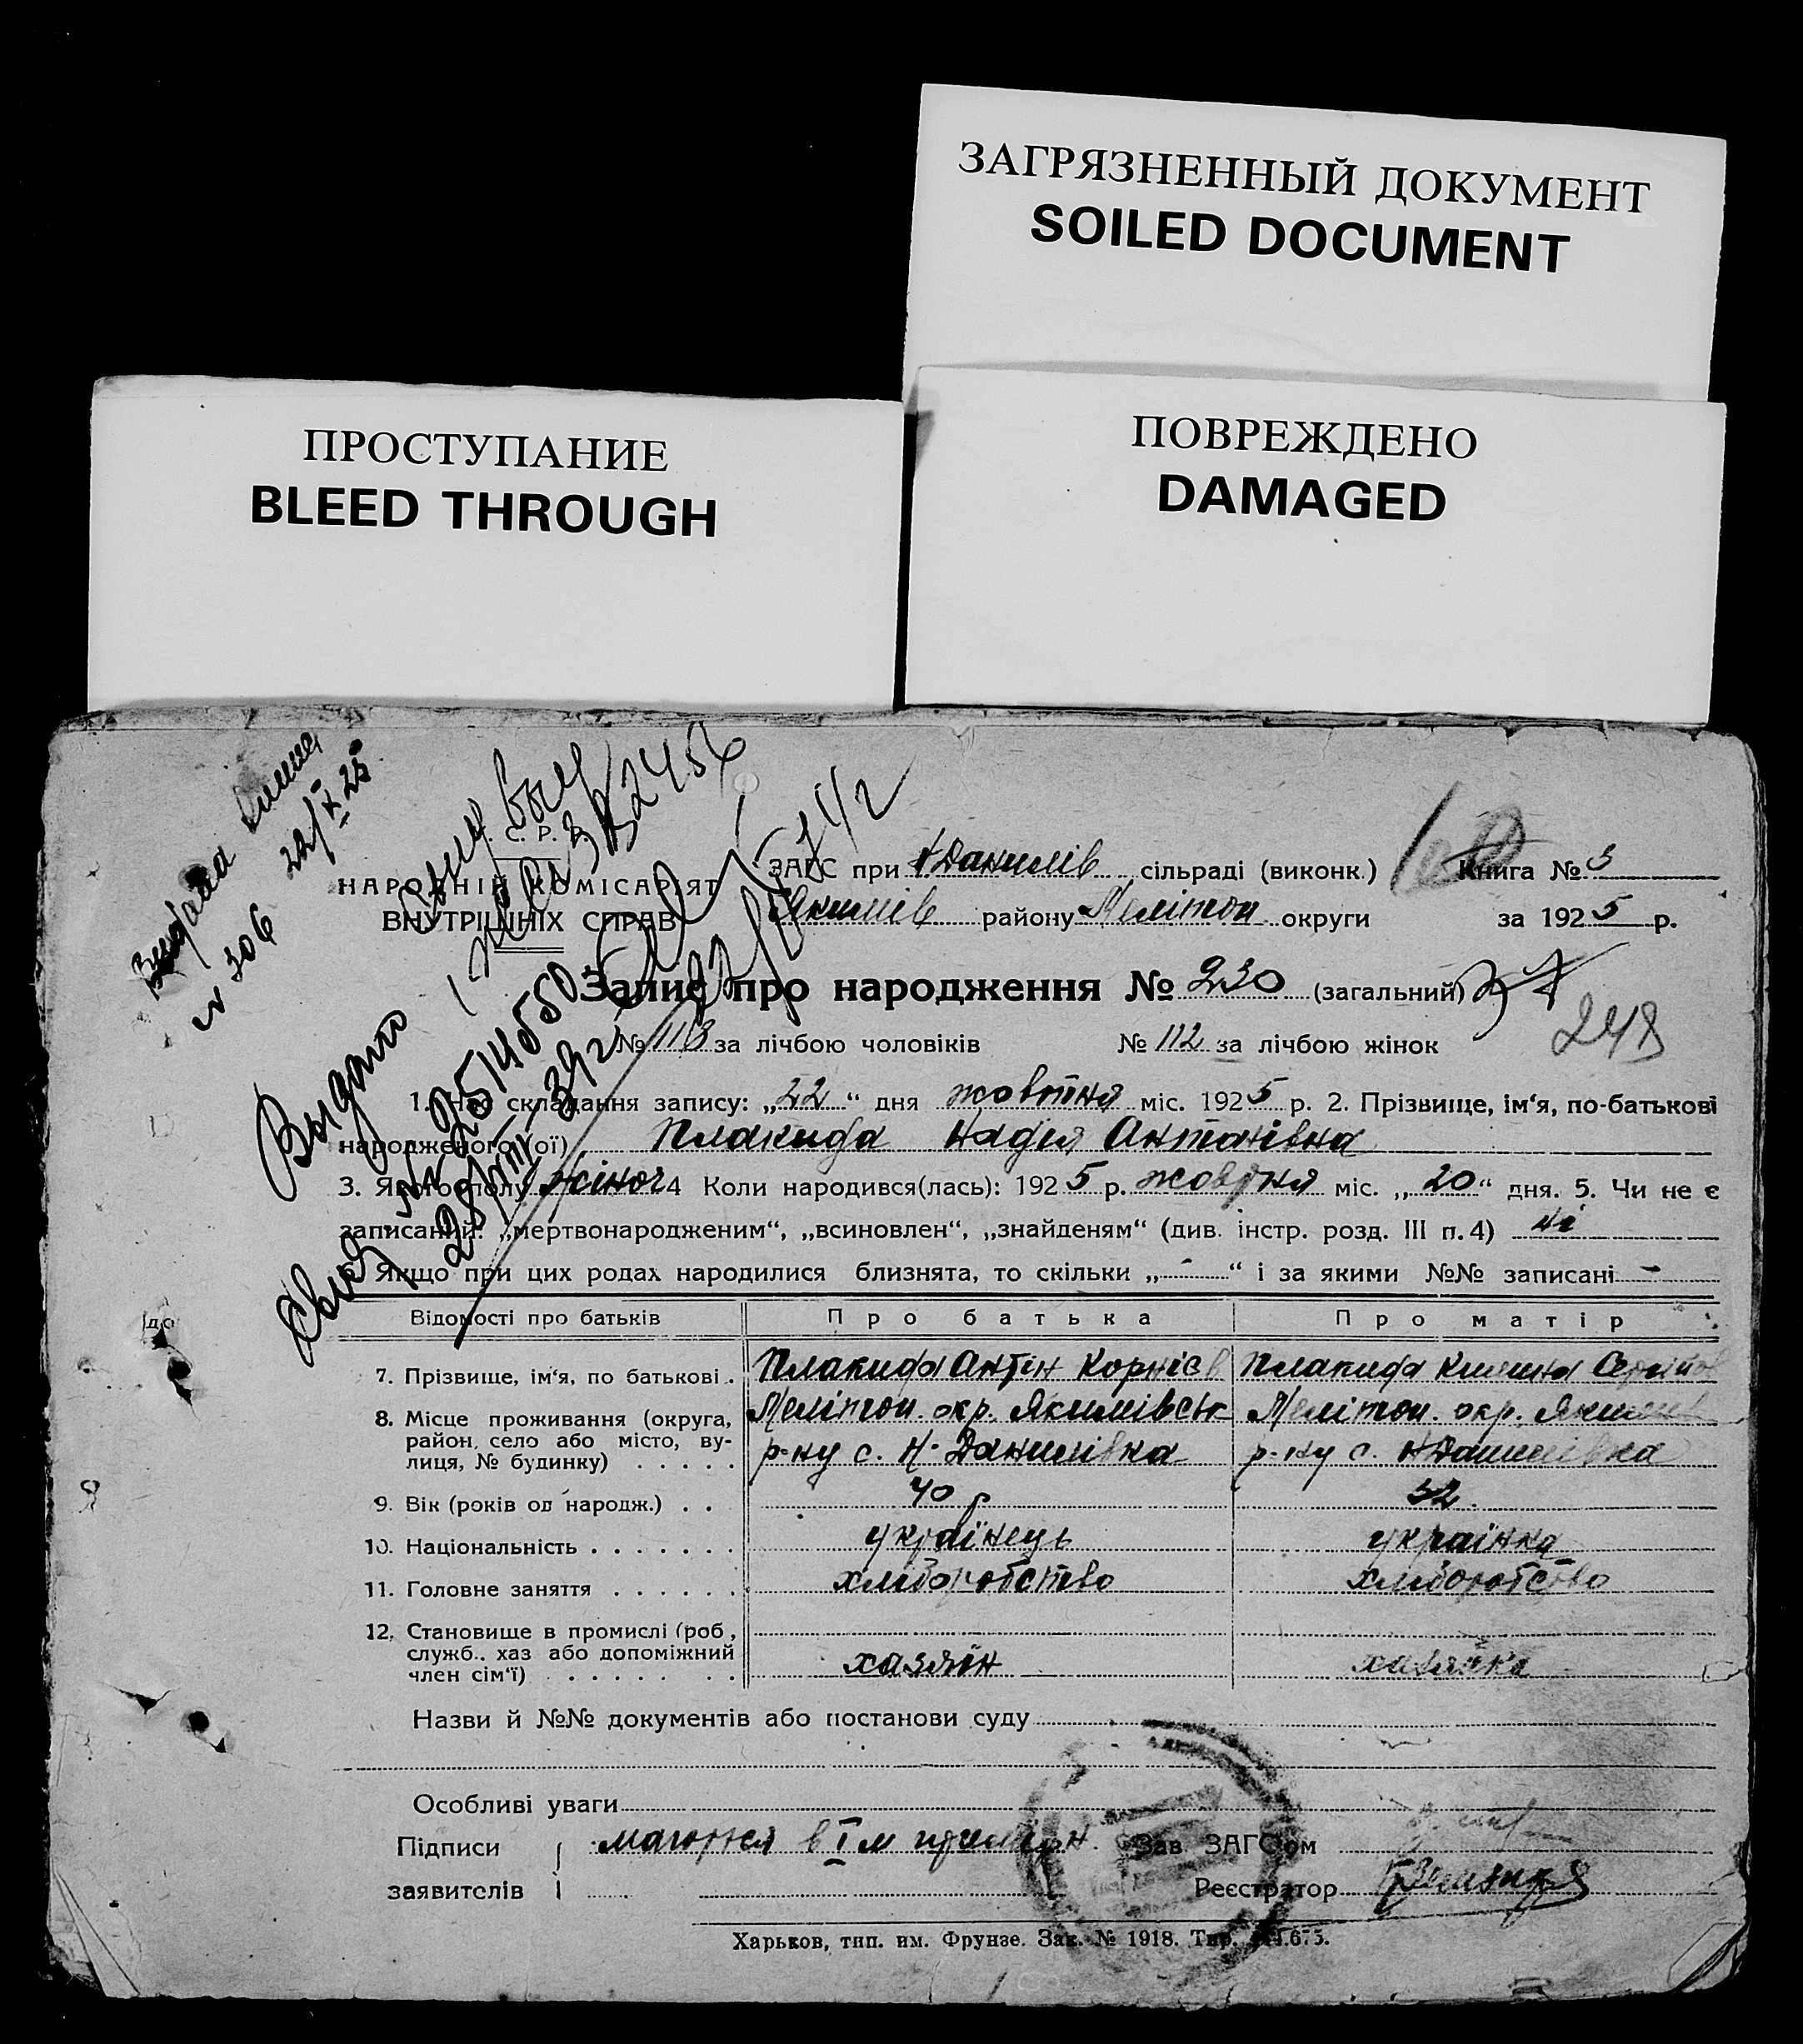 ЗАГРЯЗНЕННЫЙ ДОКУМЕНТ
SOILED DOCUMENT
ПРОСТУПАНИЕ
BLEED THROUGH
ПОВРЕЖДЕНО
DAMAGED
№ 306
С. Р. Р.
НАРОДНІЙ КОМІСАРІЯТ
ВНУТРІШНІХ СПРАВ
ЗАГС при Н Данилів сільраді (виконк.) Книга № 3
Якимів району Мелітоп округи за 1925 р.
Запис про народження № 230 (загальний)
248
№ 118 за лічбою чоловіків № 112 за лічбою жінок
1. Час складання запису: „22“ дня жовтня міс. 1925 р. 2. Прізвище, ім‘я, по-батькові
народженого (ої) Плакида Надія Антонівна
3. Якого полу жіноч 4 Коли народився(лась): 1925 р. жовтня міс. „20“ дня. 5. Чи не є
записаний: „мертвонародженим“, „всиновлен“, „знайденям“ (див. інстр. розд. III п. 4) ні
6. Якщо при цих родах народилися близнята, то скільки „-“ і за якими №№ записані -
Видано
Відомості про батьків Про батька Про матір
7. Прізвище, ім‘я, по батькові . Плакида Антін Корнієв Плакида
8. Місце проживання (округа, район, село або місто, ву-лиця, № будинку) . . . . . Мелітоп. окр. Якимівськ Мелітоп. окр. Якимів
р-ну с. Н-Данилівка р-ну с. Н Данилівка
9. Вік (років од народж.) . . 40 р 32
10. Національність . . . . . . . українець українка
11. Головне заняття . . . . . . хліборобство хліборобство
12. Становище в промислі (роб, служб.. хаз або допоміжний член сім‘ї) . . . . . . . хазяїн хазяйка
Назви й №№ документів або постанови суду
Особливі уваги
Підписи
заявителів
в I м
Зав. ЗАГС'ом
Реєстратор
Харьков, тип. им. Фрунзе. Зак. № 1918.